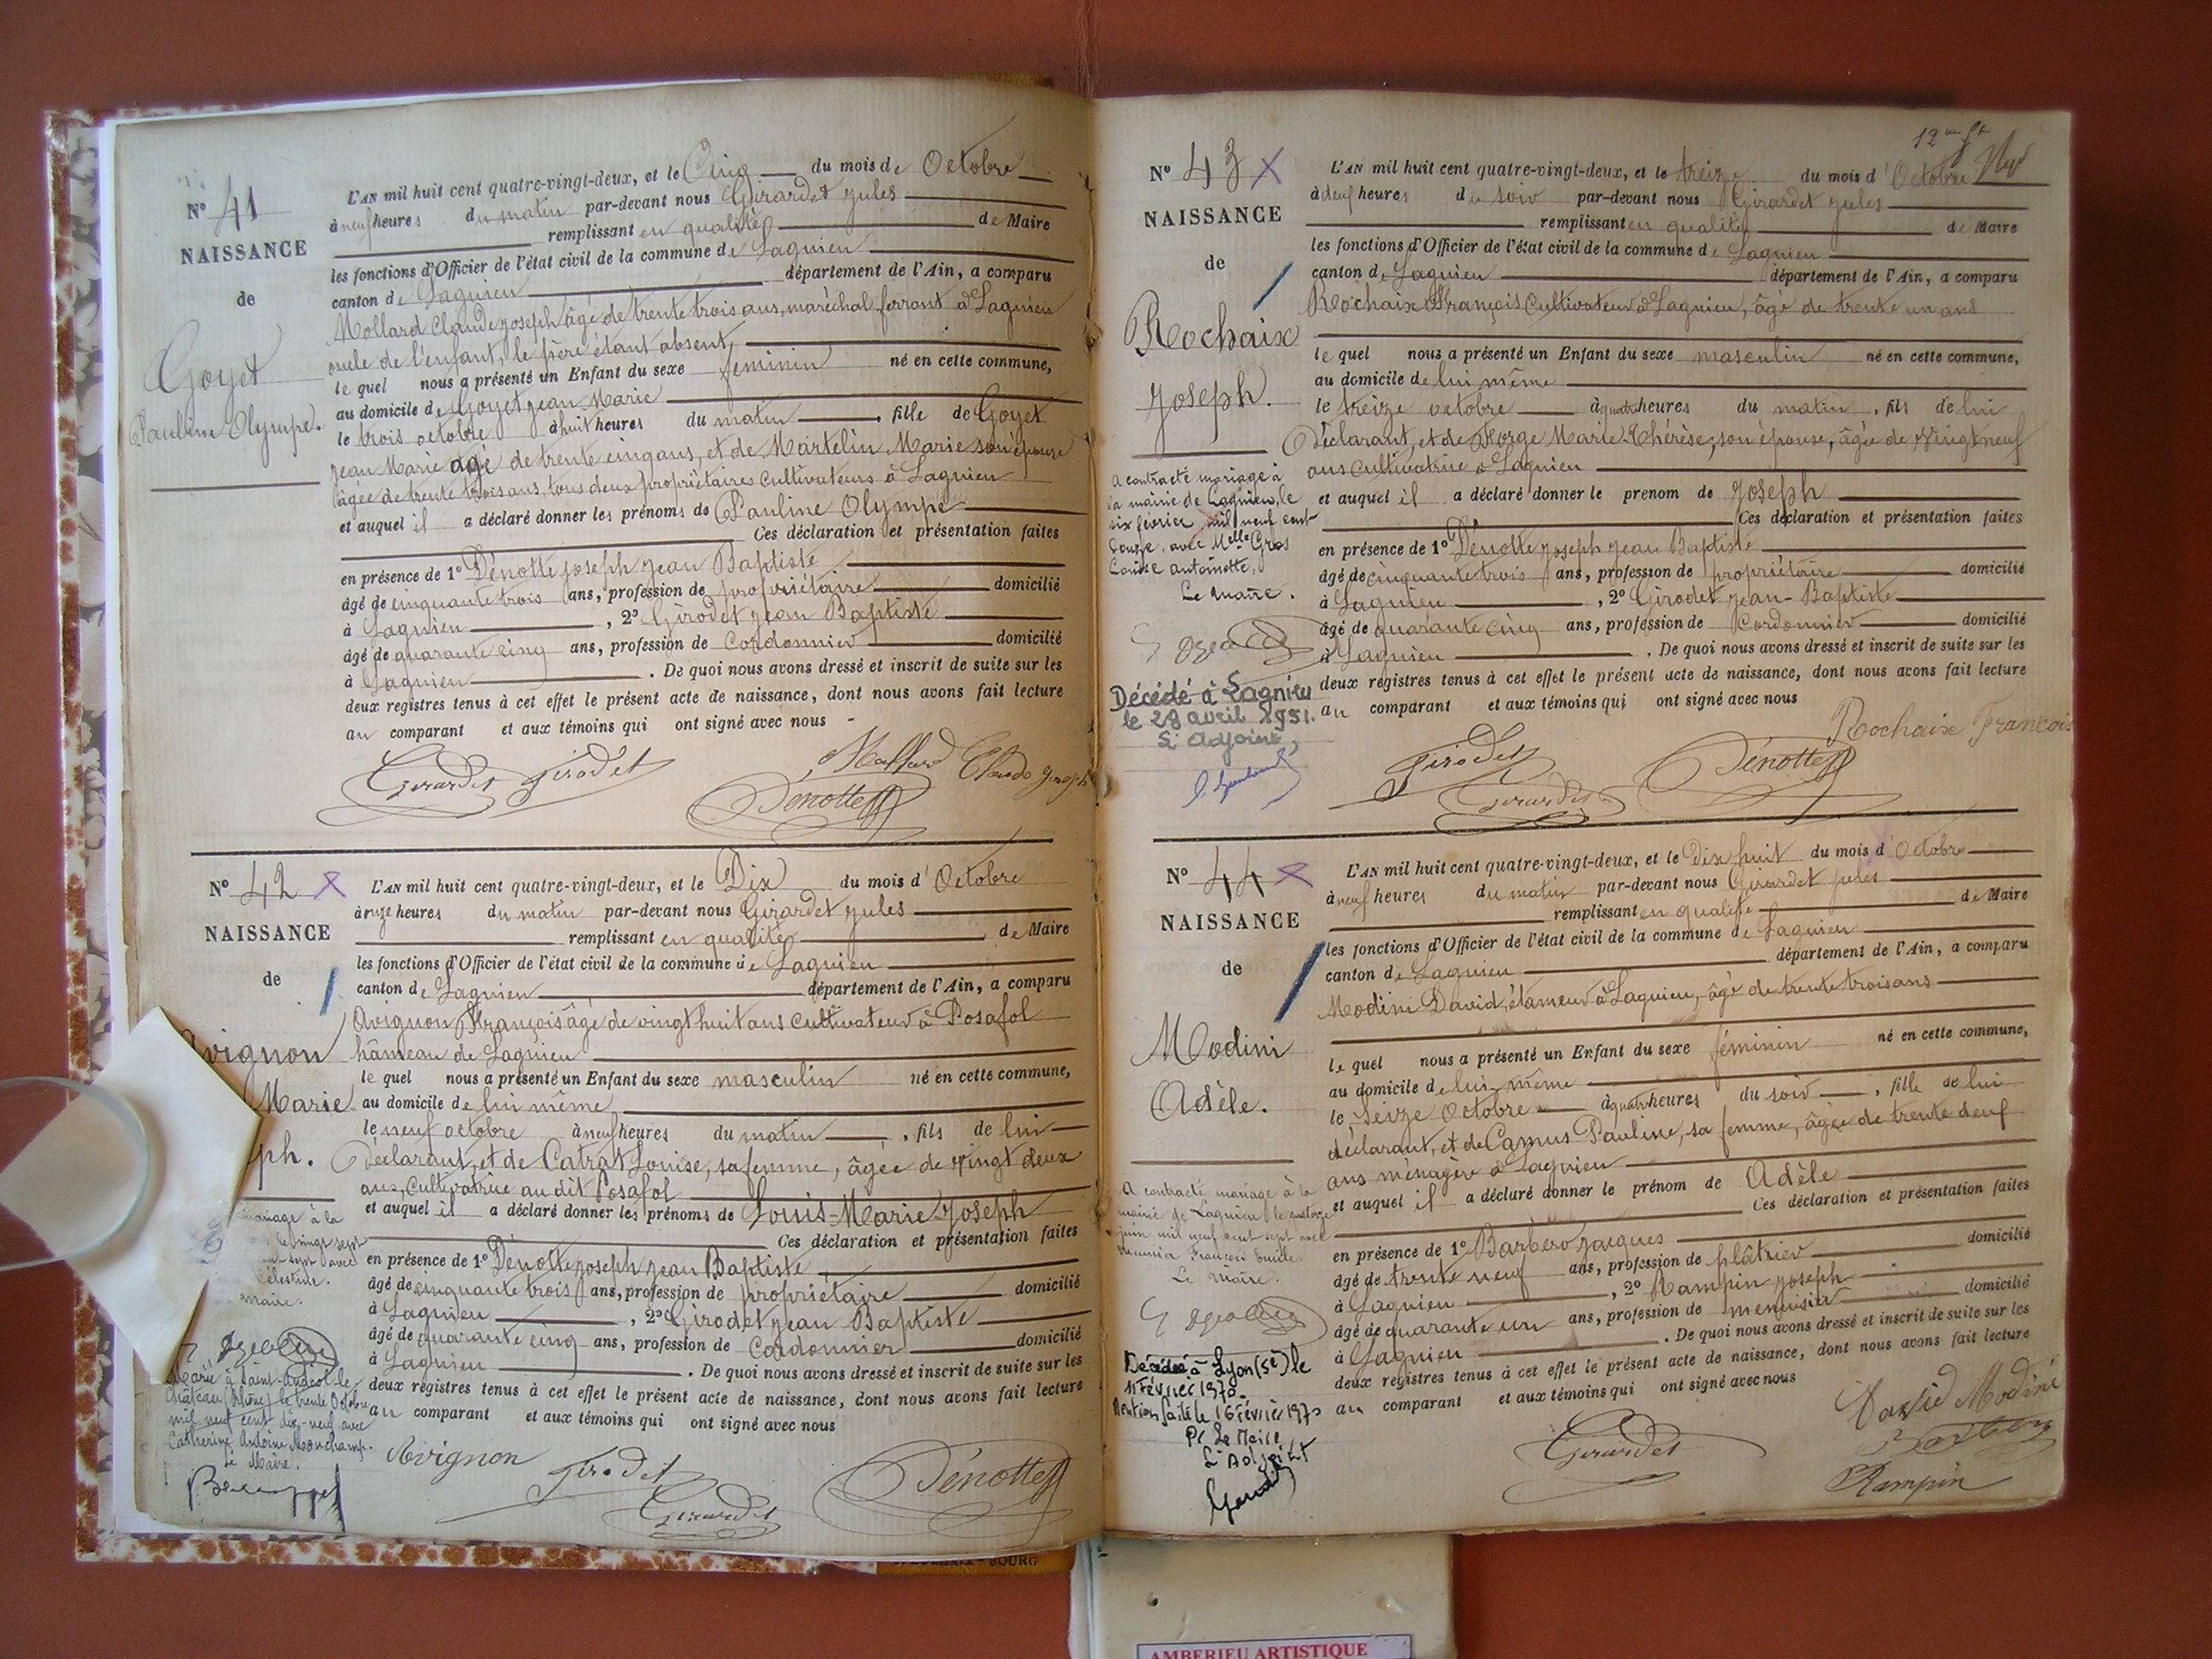 N° 41
NAISSANCE
de
Goyet
Pauline Olympe.
L'AN mil huit cent quatre-vingt-deux, et le Cinq du mois de Octobre
à neuf heures du matin par-devant nous Girardet Jules
remplissant en qualité de Maire
les fonctions d'Officier de l'état civil de la commune de Lagnieu
canton de Lagnieu département de l'Ain, a comparu
Mollard Claude Joseph âgé de trente trois ans, maréchal ferrant à Lagnieu
oncle de l'enfant, le père étant absent,
le quel nous a présenté un Enfant du sexe féminin né en cette commune,
au domicile de Goyet Jean Marie
le trois octobre à huit heures du matin, fille de Goyet
Jean Marie agé de trente cinq ans, et de Martelin Marie son épouse
âgée de trente trois ans, tous deux propriétaires cultivateurs à Lagnieu
et auquel il a déclaré donner les prénoms de Pauline Olympe
Ces déclaration et présentation faites
en présence de 1° Dénotte Joseph Jean Baptiste
âgé de cinquante trois ans, profession de propriétaire domicilié
à Lagnieu, 2° Girodet Jean Baptiste
âgé de quarante cinq ans, profession de Cordonnier domicilié
à Lagnieu. De quoi nous avons dressé et inscrit de suite sur les
deux registres tenus à cet effet le présent acte de naissance, dont nous avons fait lecture
au comparant et aux témoins qui ont signé avec nous
Girardet Girodet Mollard Claude Joseph
Dénotte
N° 42
NAISSANCE
de
vignon
Marie
ph.
L'AN mil huit cent quatre-vingt-deux, et le Dix du mois d'Octobre
à onze heures du matin par-devant nous Girardet Jules
remplissant en qualité de Maire
les fonctions d'Officier de l'état civil de la commune de Lagnieu
canton de Lagnieu département de l'Ain, a comparu
Avignon François âgé de vingt huit ans cultivateur à Posafol
hâmeau de Lagnieu
le quel nous a présenté un Enfant du sexe masculin né en cette commune,
au domicile de lui même
le neuf octobre à neuf heures du matin, fils de lui
déclarant, et de Catrat Louise, sa femme, âgée de vingt deux
ans, Cultivatrice au dit Posafol
et auquel il a déclaré donner les prénoms de Louis-Marie-Joseph
Ces déclaration et présentation faites
en présence de 1° Dénotte Joseph Jean Baptiste
âgé de cinquante trois ans, profession de propriétaire domicilié
à Lagnieu, 2° Girodet Jean Baptiste
âgé de quarante cinq ans, profession de Cordonnier domicilié
à Lagnieu. De quoi nous avons dressé et inscrit de suite sur les
deux registres tenus à cet effet le présent acte de naissance, dont nous avons fait lecture
au comparant et aux témoins qui ont signé avec nous
mariage à la
le vingt sept
sept avec
Célestine.
maire.
Marié à Saint-Andéol-le-
Château (Rhône) le trente Octobre
mil neuf cent dix-neuf avec
Catherine Antoine Monchamp.
Le Maire.
Avignon Girodet Dénotte
Girardet
12me ft
N° 43
NAISSANCE
de
Rochaix
Joseph.
L'AN mil huit cent quatre-vingt-deux, et le treize du mois d'Octobre
à neuf heures du soir par-devant nous Girardet Jules
remplissant en qualité de Maire
les fonctions d'Officier de l'état civil de la commune de Lagnieu
canton de Lagnieu département de l'Ain, a comparu
Rochaix François Cultivateur à Lagnieu, âgé de trente un ans
le quel nous a présenté un Enfant du sexe masculin né en cette commune,
au domicile de lui même
le treize octobre à quatre heures du matin, fils de lui
Déclarant, et de Morge Marie-Thérèse, son épouse, âgée de vingt neuf
ans cultivatrice à Lagnieu
et auquel il a déclaré donner le prenom de Joseph
Ces déclaration et présentation faites
en présence de 1° Dénotte Joseph Jean Baptiste
âgé de cinquante trois ans, profession de propriétaire domicilié
à Lagnieu, 2° Girodet Jean-Baptiste
âgé de quarante cinq ans, profession de Cordonnier domicilié
à Lagnieu. De quoi nous avons dressé et inscrit de suite sur les
deux registres tenus à cet effet le présent acte de naissance, dont nous avons fait lecture
au comparant et aux témoins qui ont signé avec nous
A contracté mariage à
la mairie de Lagnieu, le
six février mil neuf cent
douze, avec Melle Gros
Louise antoinette.
Le Maire.
Décédé à Lagnieu
le 28 avril 1951.
L'Adjoint,
Rochaix Francois
Girodet Dénotte
Girardet
N° 44
NAISSANCE
de
Modini
Adèle.
L'AN mil huit cent quatre-vingt-deux, et le Dix huit du mois d'Octobre
à neuf heures du matin par-devant nous Girardet Jules
remplissant en qualité de Maire
les fonctions d'Officier de l'état civil de la commune de Lagnieu
canton de Lagnieu département de l'Ain, a comparu
Modini David, étameur à Lagnieu, âgé de trente trois ans
le quel nous a présenté un Enfant du sexe féminin né en cette commune,
au domicile de lui même
le seize Octobre à quatre heures du soir, fille de lui
déclarant, et de Camus Pauline, sa femme, âgée de trente deux
ans ménagère à Lagnieu
et auquel il a déclaré donner le prénom de Adèle
Ces déclaration et présentation faites
en présence de 1° Barbero Jacques
âgé de trente neuf ans, profession de plâtrier domicilié
à Lagnieu, 2° Rampin Joseph
âgé de quarante un ans, profession de menuisier domicilié
à Lagnieu. De quoi nous avons dressé et inscrit de suite sur les
deux registres tenus à cet effet le présent acte de naissance, dont nous avons fait lecture
au comparant et aux témoins qui ont signé avec nous
A contracté mariage à la
mairie de Lagnieu le quatorze
juin mil neuf cent sept avec
François Emile.
Le Maire.
Décédée à Lyon (5e) le
11 Février 1970.
Mention faite le 16 Février 1970
Pr Le Maire,
L'Adjoint
David Modini
Girardet Barbero
Rampin
BOURG
AMBERIEU ARTISTIQUE